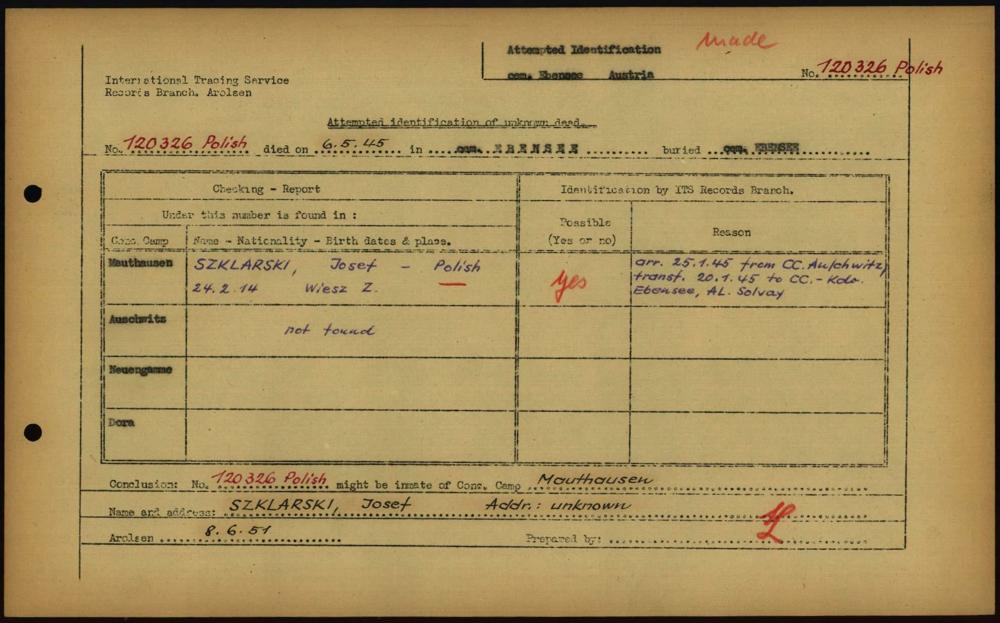 Attempted Identification made
International Tracing Service cem. Ebensee Austria No. 120326 Polish
Records Branch. Arolsen
Attempted identification of unknown dead.
No. 120326 Polish died on 6.5.45 in cem. EBENSEE buried cem. EBENSEE
Checking - Report Identification by ITS Records Branch.
Under this number is found in :
Possible
(Yes or no) Reason
Conc. Camp Name - Nationality - Birth dates & place.
Mauthausen SZKLARSKI, Josef - Polish yes arr. 25.1.45 from CC. Auschwitz,
24.2.14 Wiesz Z. transf. 20.1.45 to CC.- Kdo.
Ebensee, AL. Solvay
Auschwitz not found
Neuengamme
Dora
Conclusion: No. 120326 Polish might be inmate of Conc. Camp Mauthausen
Name and address: SZKLARSKI, Josef Addr.: unknown
Arolsen 8.6.51 Prepared by: